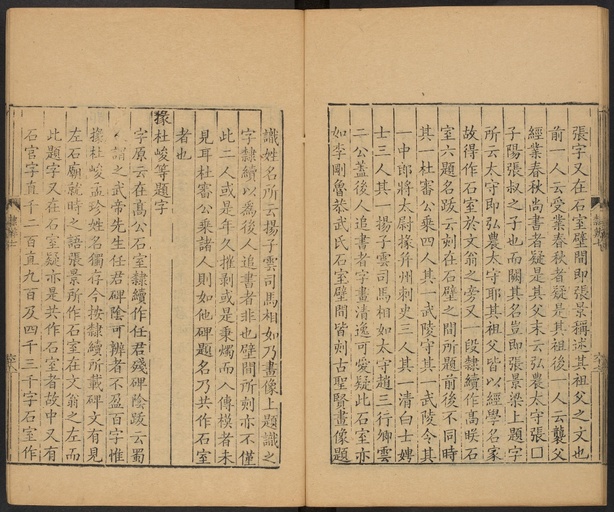 張字又在石室壁間即張景稱述其祖父之文也
前一人云受業春秋者疑是其祖後一人云襲父
經業春秋尚書者疑是其父末云弘農太守張囗
子陽張叔之子也而闕其名豈即張景梁上題字
所云太守即弘農太守耶其祖父皆以經學名家
故得作石室於文翁之旁又一段隸續作高䀢石
室六題名跋云刻在石壁之間所題前後不同時
其一杜審公乘四人其一武陵守其一武陵令其
一中郎將太尉掾并州刺史三人其一清白士娉
士三人其一揚子雲司馬相如太守趙三行卿雲
二公蓋後人追書者字畫清逸可愛疑此石室亦
如李剛魯恭武氏石室壁間皆刻古聖賢畫像題
識姓名所云揚子雲司馬相如乃畫像上題識之
字隸續以爲後人追書者非也壁間所刻亦不僅
此二人或是年久摧剥或是秉燭而入傳模者未
見耳杜審公乘諸人則如他碑題名乃共作石室
者也
掾杜峻等題字
字原云在高公石室隸續作任君殘碑陰跋云蜀
謂之武帝先生任君碑陰可辨者不盈百字惟
掾杜峻孟珍姓名獨存今按隸續所載碑文有見
左右廟就時之語張景所作石室在文翁之左而
此題字又在石室疑亦是共作石室者故中又有
石官字直千二百直九百及四千三千字石室作